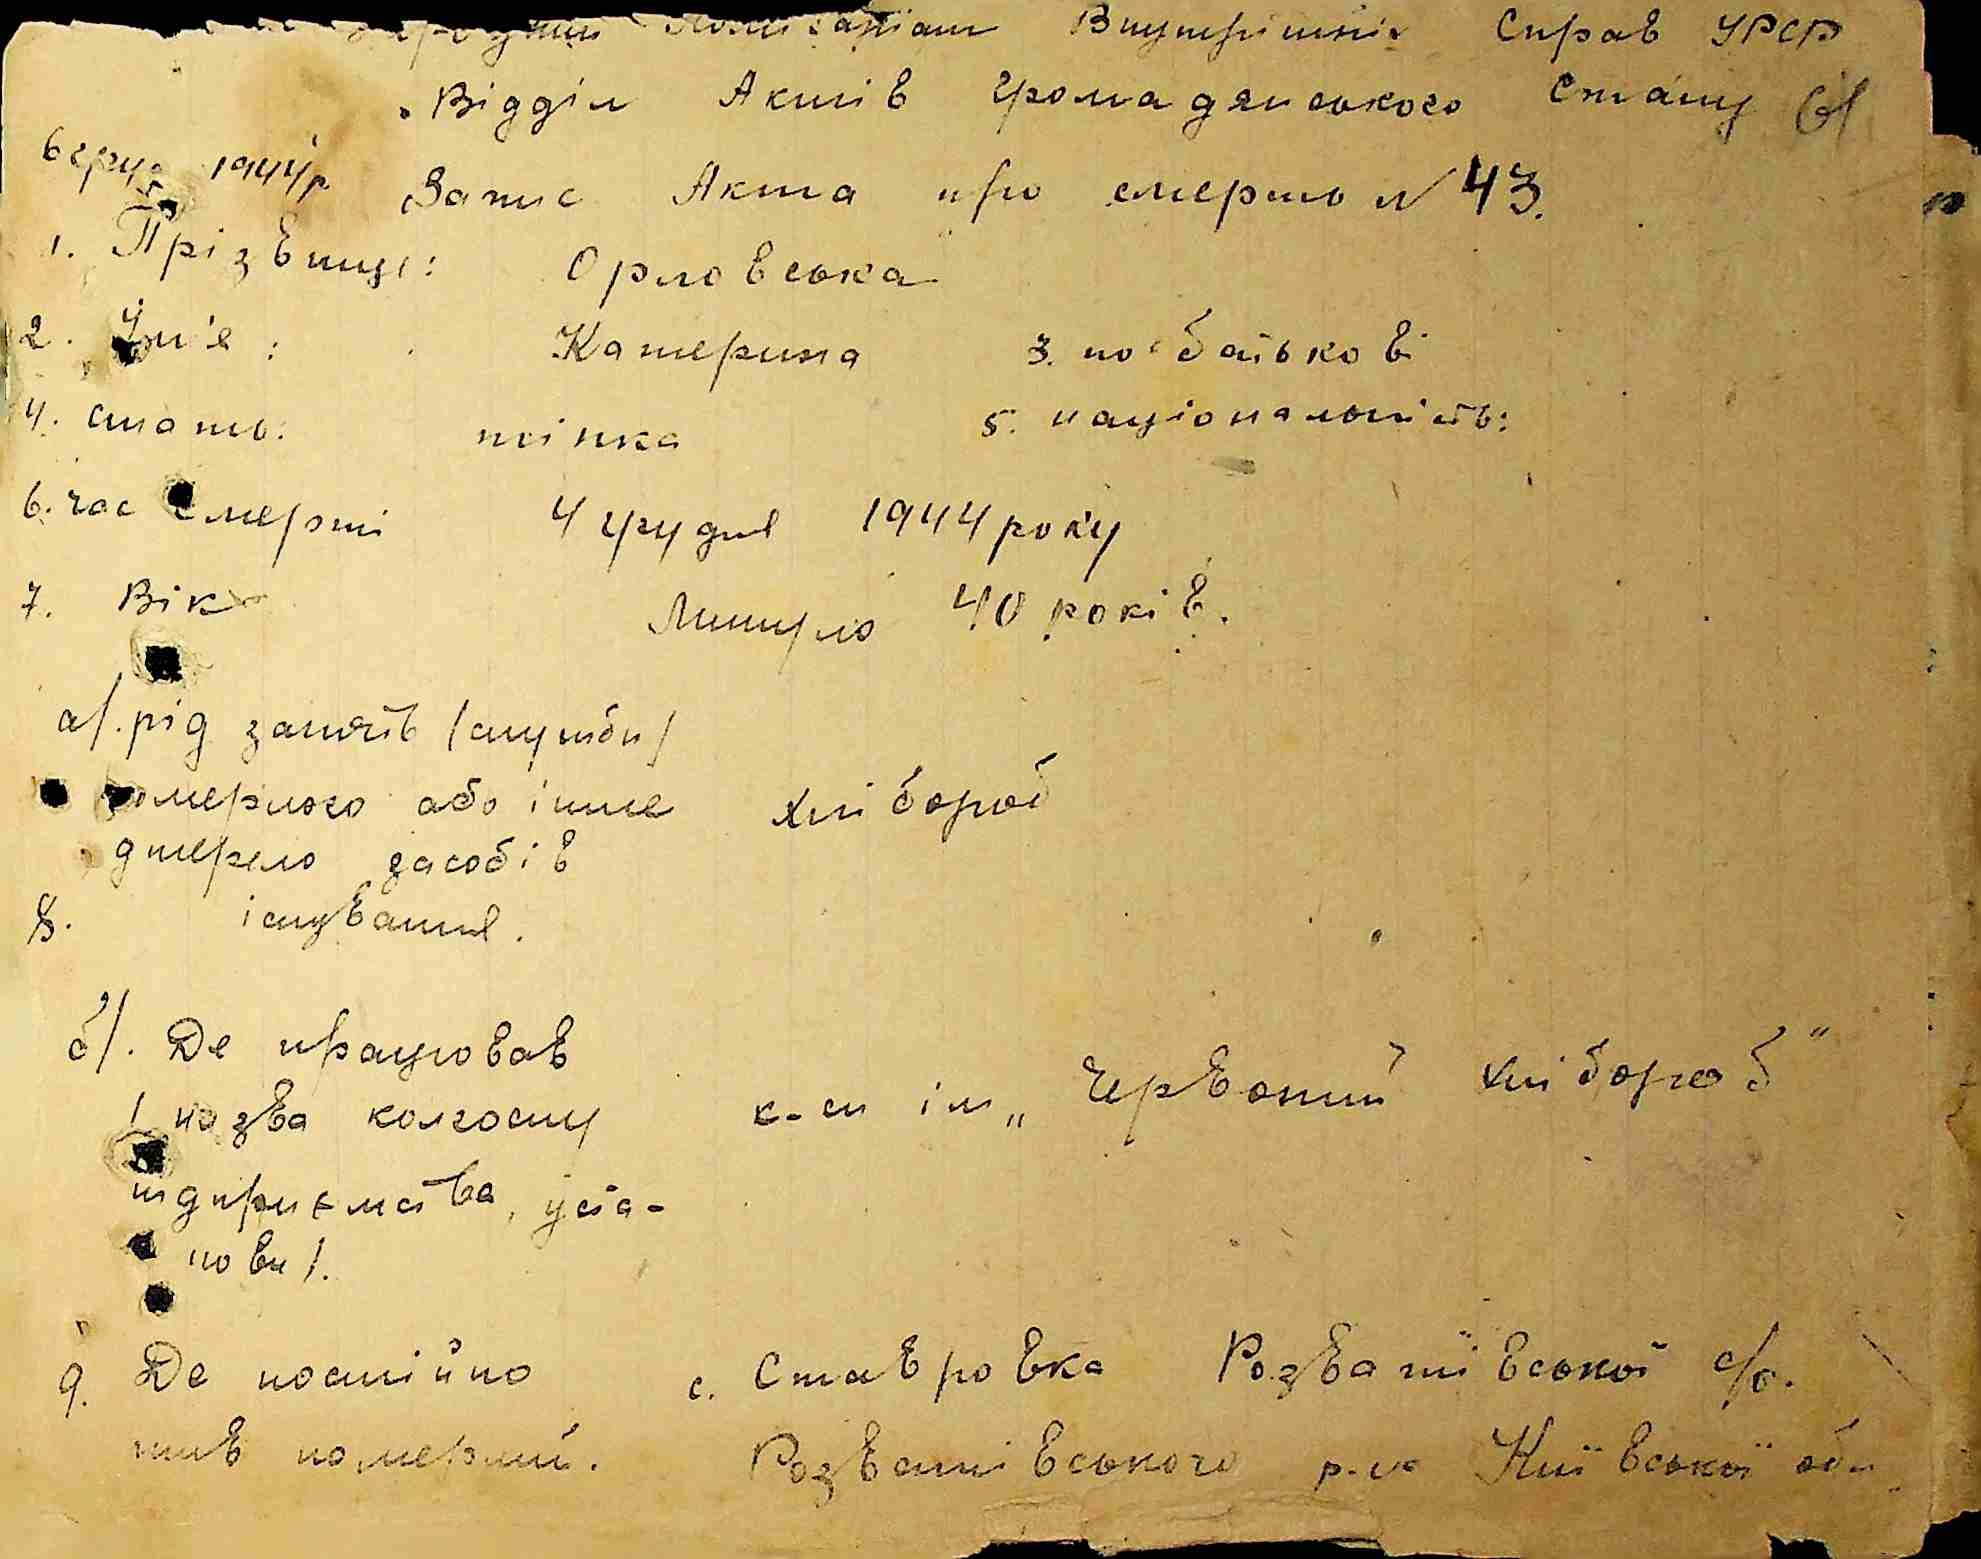 Народний Комісаріат Внутрішніх Справ УРСР
Відділ Актів Громадянського Стану
6 груд 1944 р Запис Акта про смерть № 43.
1. Прізвище: Орловська
2. Ім'я: Катерина 3. по батькові
4. стать: жінка 5. національність:
6. час смерті 4 грудня 1944 року
7. Вік Минуло 40 років.
а/. рід занять /служби/
померлого або інше хлібороб
джерело засобів
8. існування.
б/. Де працював
/назва колгоспу к-сп ім „Червоний хлібороб"
підприємства, уста-
нови/.
9. Де постійно с. Ставровка Розважівської с/р.
жив померлий. Розважівського р-на Київської обл